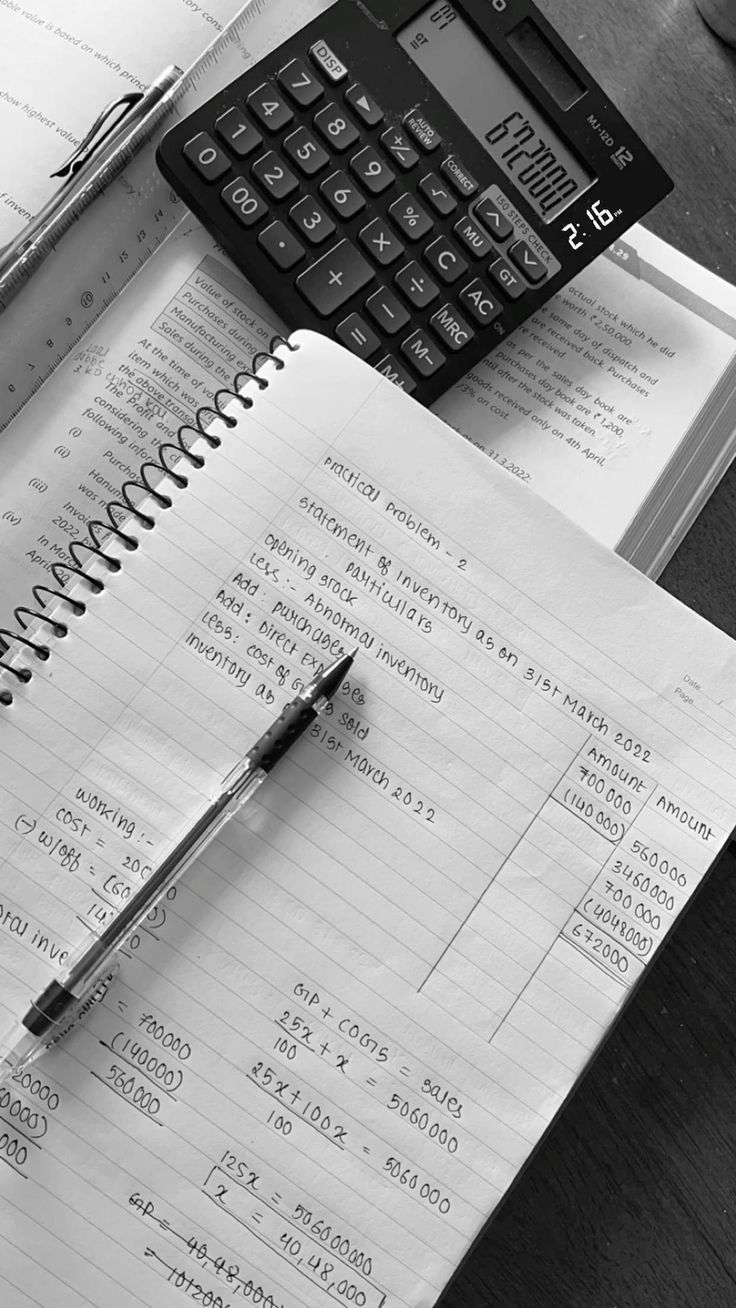 able value is based on which princ
how highest value
f invent
DISP
GT
672000.
MJ-12D 12
7 8 9
4 5 6
1 2 3
0 00 .
AUTO REVIEW
CORRECT
150 STEPS CHECK
MU
GT
C
AC
ON
MRC
M-
M+
2:16 PM
Value of stock on
Purchases during
Manufacturing ex
Sales during the
At the time of v
item which was
the above transa
the Profit and
considering the c
following inform
(i) Purch
(ii) Hanuma
was made
(iii) Invoices
2022, b
(iv) In March
April, 20
actual stock which he did
worth ₹ 2,50,000.
same day of dispatch and
are received back. Purchases
received.
as per the sales day book are
purchases day book are ₹ 1,200,
until after the stock was taken.
goods received only on 4th April,
/3% on cost.
on 31.3.2022.
Date
Page
practical problem - 2
statement of inventory as on 31st March 2022
particulars Amount Amount
opening stock 700000
Less :- Abnormal inventory (140000) 560000
Add : purchases 3460000
Add : Direct Exp es 700000
Less : cost of G s sold (4048000)
inventory as 31st March 2022 672000
working :-
cost = 200
(-) w/off = (60
14
inve
= 700000
(140000)
560000
GP + COGS = sales
25x/100 + x = 5060000
25x + 100x / 100 = 5060000
125x = 506000000
x = 40,48,000
GP = 40,48,000
= 1012000